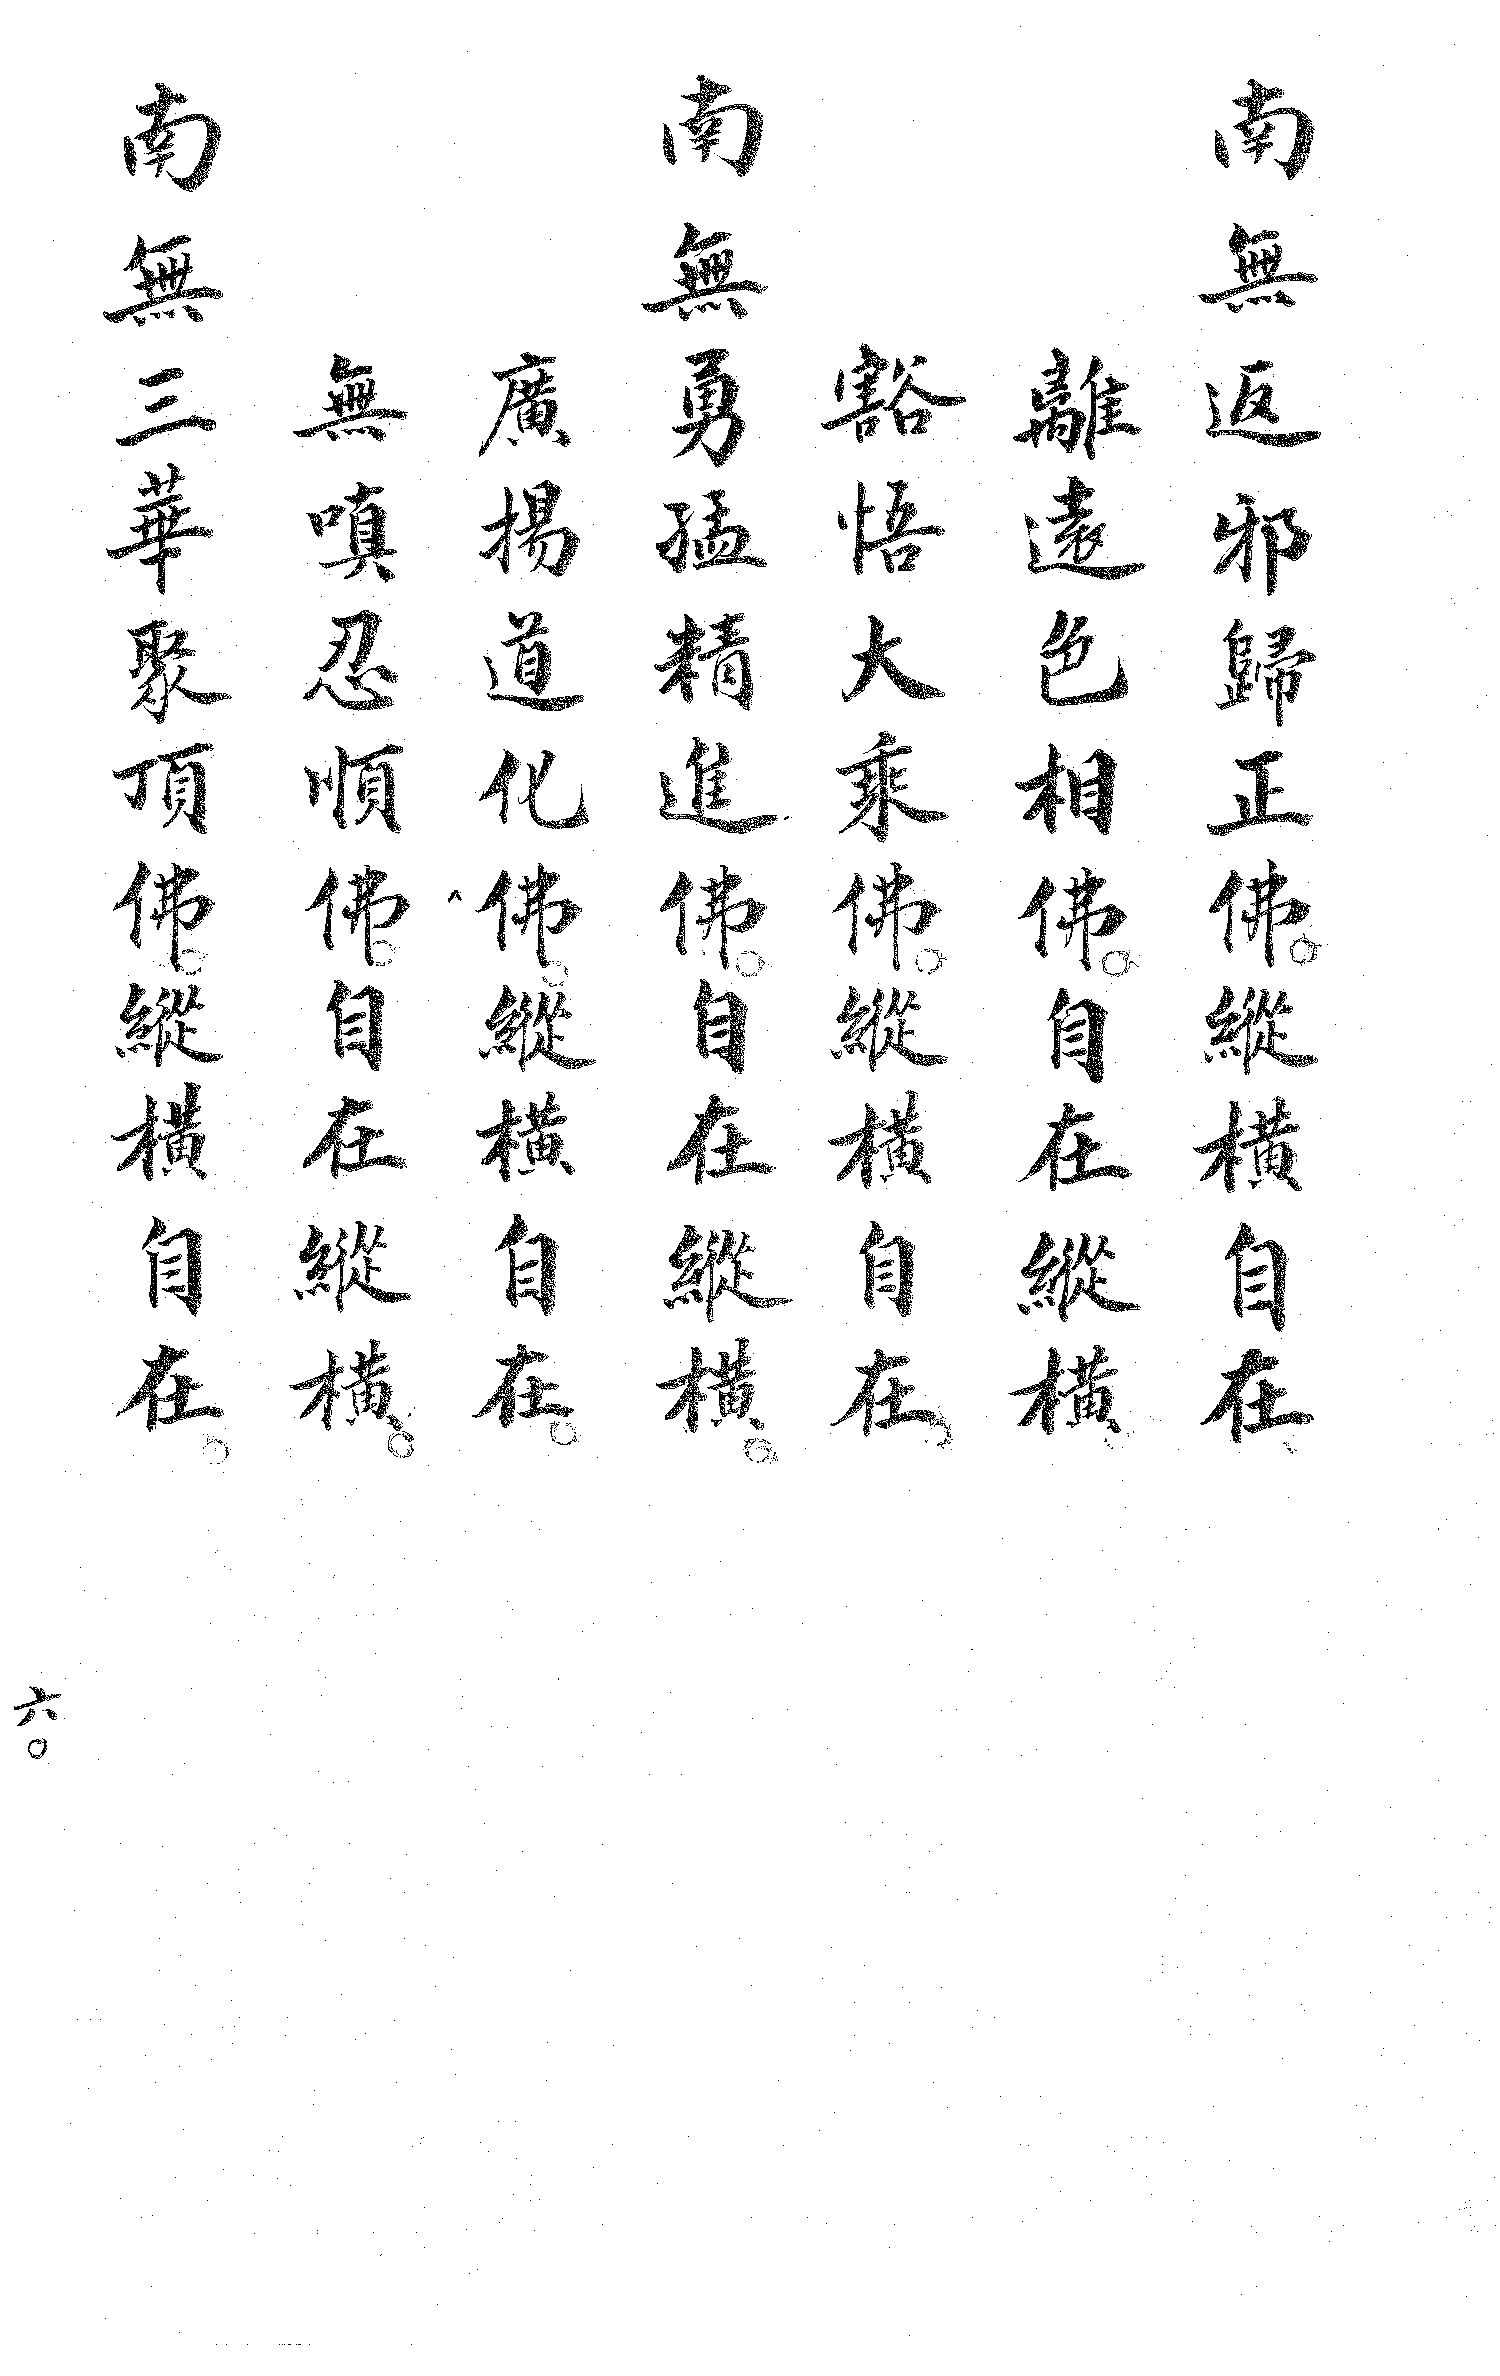 南無返邪歸正佛。縱橫自在
離遠色相佛。自在縱橫
豁悟大乘佛。縱橫自在。
南無勇猛精進佛。自在縱橫。
廣揚道化佛。縱橫自在。
無嗔忍順佛。自在縱橫。
南無三華聚頂佛。縱橫自在。
六〇